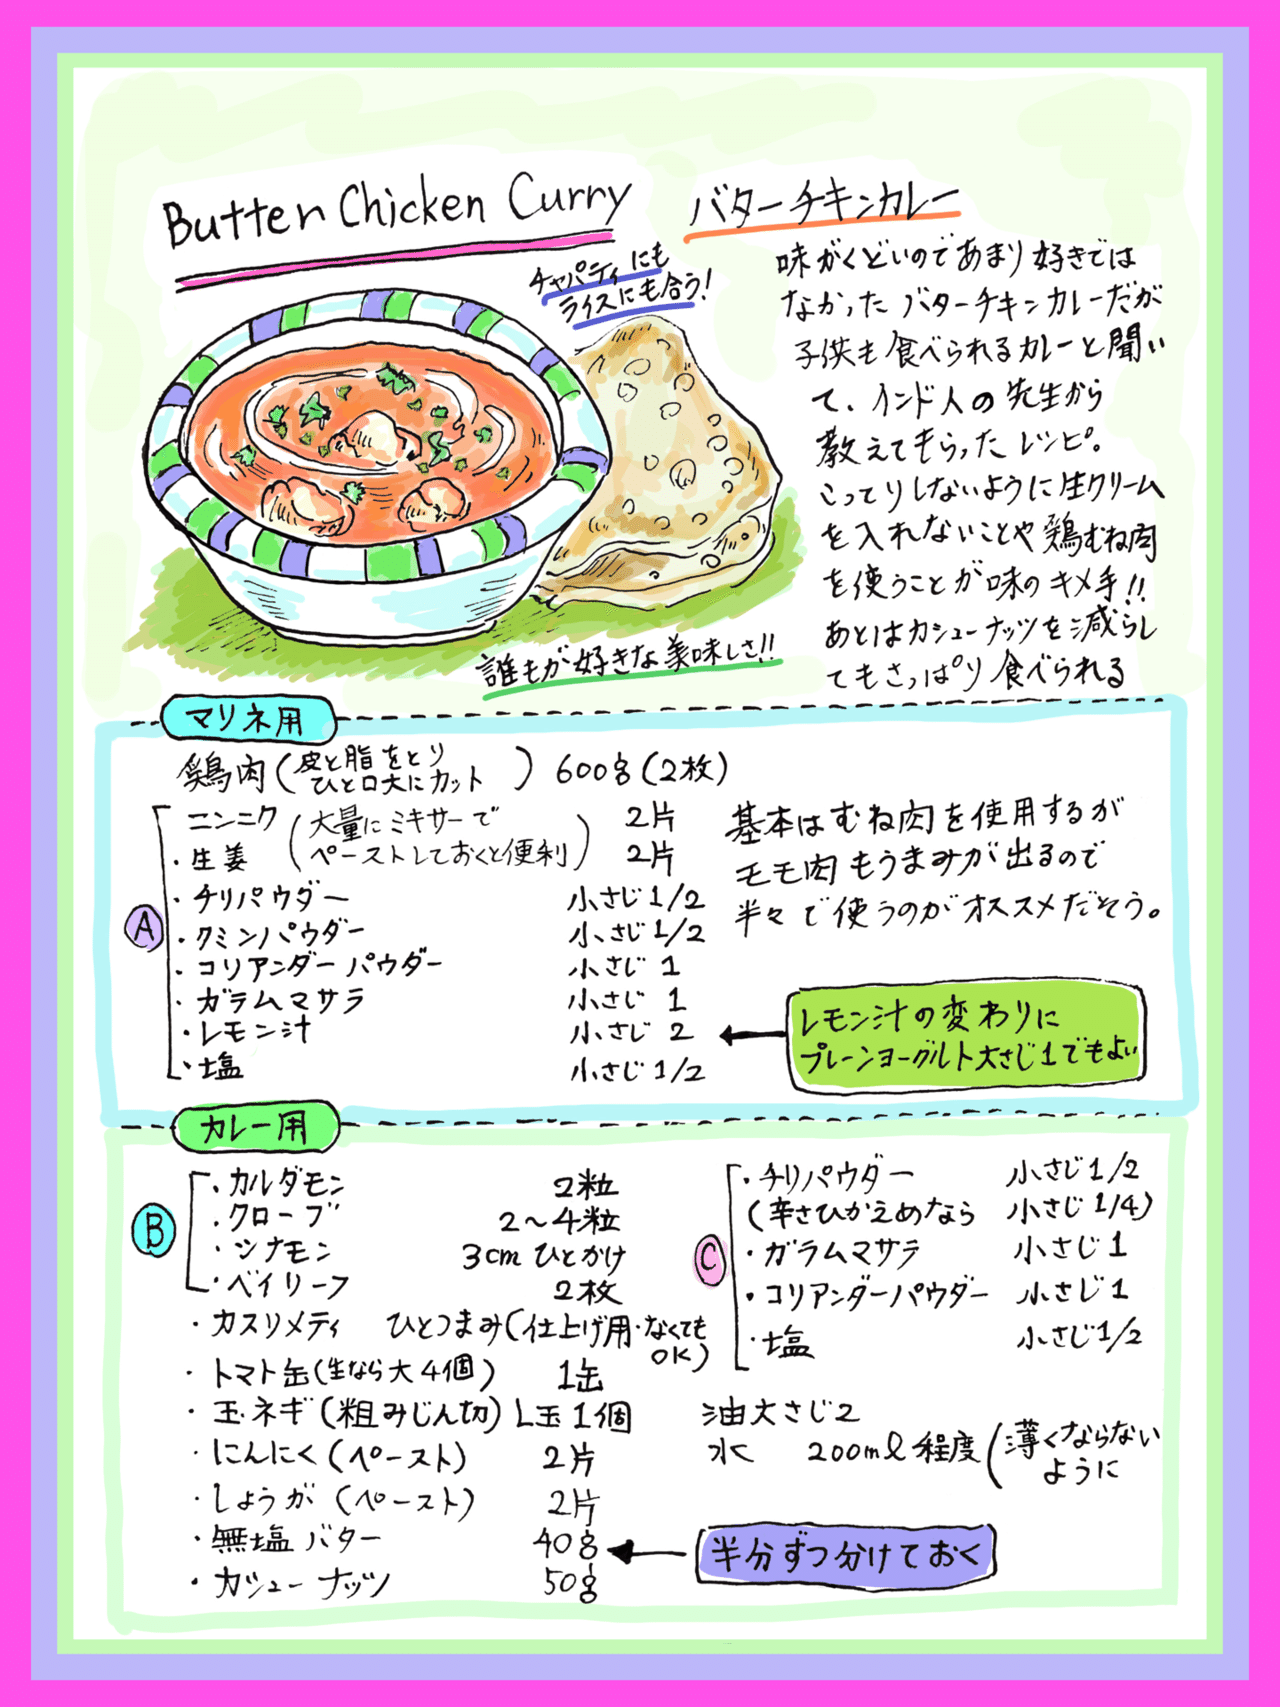 Butter Chicken Curry
バターチキンカレー
チャパティにも
ライスにも合う!
味がくどいのであまり好きでは
なかったバターチキンカレーだが
子供も食べられるカレーと聞い
て、インド人の先生から
教えてもらったレシピ。
こってりしないように生クリーム
を入れないことや鶏むね肉
を使うことが味のキメ手!!
あとはカシューナッツを減らし
てもさっぱり食べられる
誰もが好きな美味しさ!!
マリネ用
鶏肉(皮と脂をとり
ひと口大にカット) 600g(2枚)
Ⓐ
ニンニク(大量にミキサーで 2片
・生姜 ペーストしておくと便利) 2片
・チリパウダー 小さじ1/2
・クミンパウダー 小さじ1/2
・コリアンダーパウダー 小さじ1
・ガラムマサラ 小さじ1
・レモン汁 小さじ2
・塩 小さじ1/2
基本はむね肉を使用するが
モモ肉もうまみが出るので
半々で使うのがオススメだそう。
レモン汁の変わりに
プレーンヨーグルト大さじ1でもよい
カレー用
Ⓑ
・カルダモン 2粒
・クローブ 2〜4粒
・シナモン 3cmひとかけ
・ベイリーフ 2枚
・カスリメティ ひとつまみ(仕上げ用・なくても
OK)
・トマト缶(生なら大4個) 1缶
・玉ネギ(粗みじん切) L玉1個
・にんにく(ペースト) 2片
・しょうが(ペースト) 2片
・無塩バター 40g
・カシューナッツ 50g
Ⓒ
・チリパウダー 小さじ1/2
(辛さひかえめなら 小さじ1/4)
・ガラムマサラ 小さじ1
・コリアンダーパウダー 小さじ1
・塩 小さじ1/2
油大さじ2
水 200ml程度(薄くならない
ように
半分ずつ分けておく